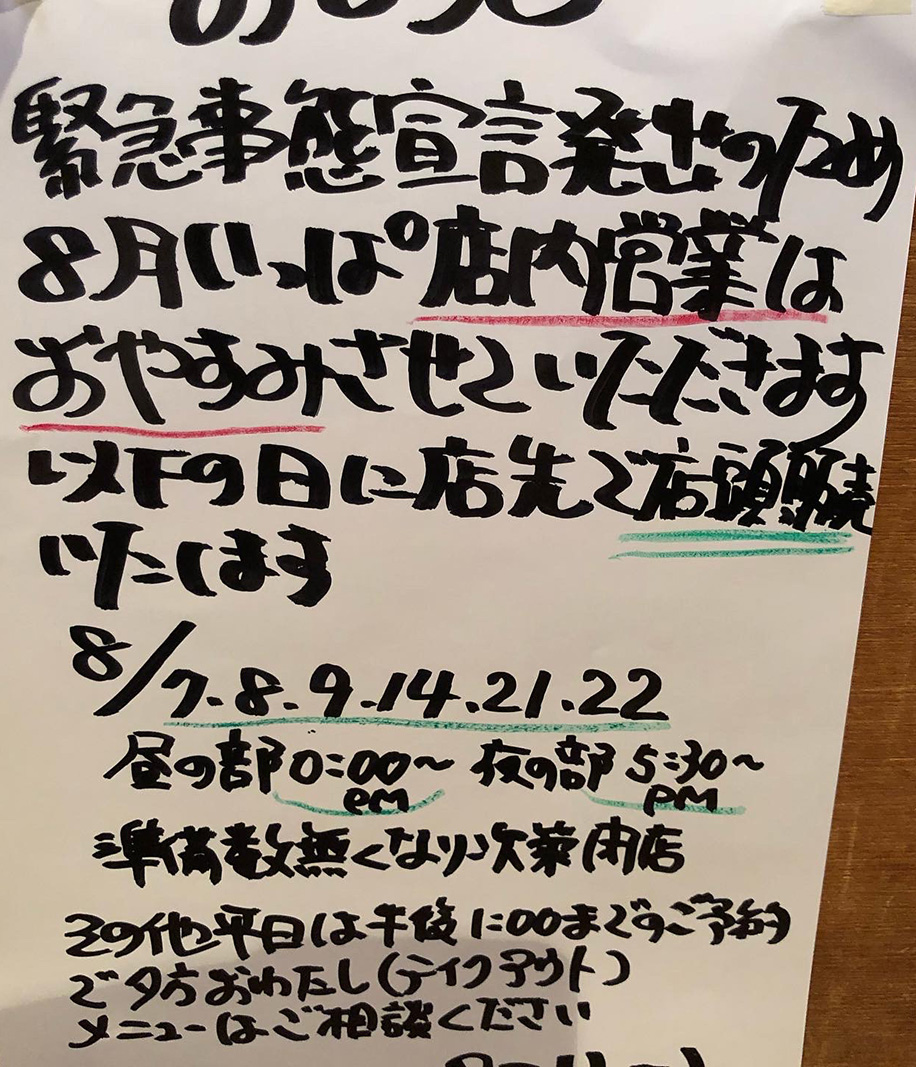 緊急事態宣言発せのため
8月いっぱ°店内営業は
おやすみさせていただきます
以下の日に店先で店頭販売
いたします
8/7.8.9.14.21.22
昼の部0:00〜 夜の部5:30〜
PM PM
準備数無くなり次第閉店
その他平日は午後1:00までのご予約
で夕方おわたし(テイクアウト)
メニューはご相談ください